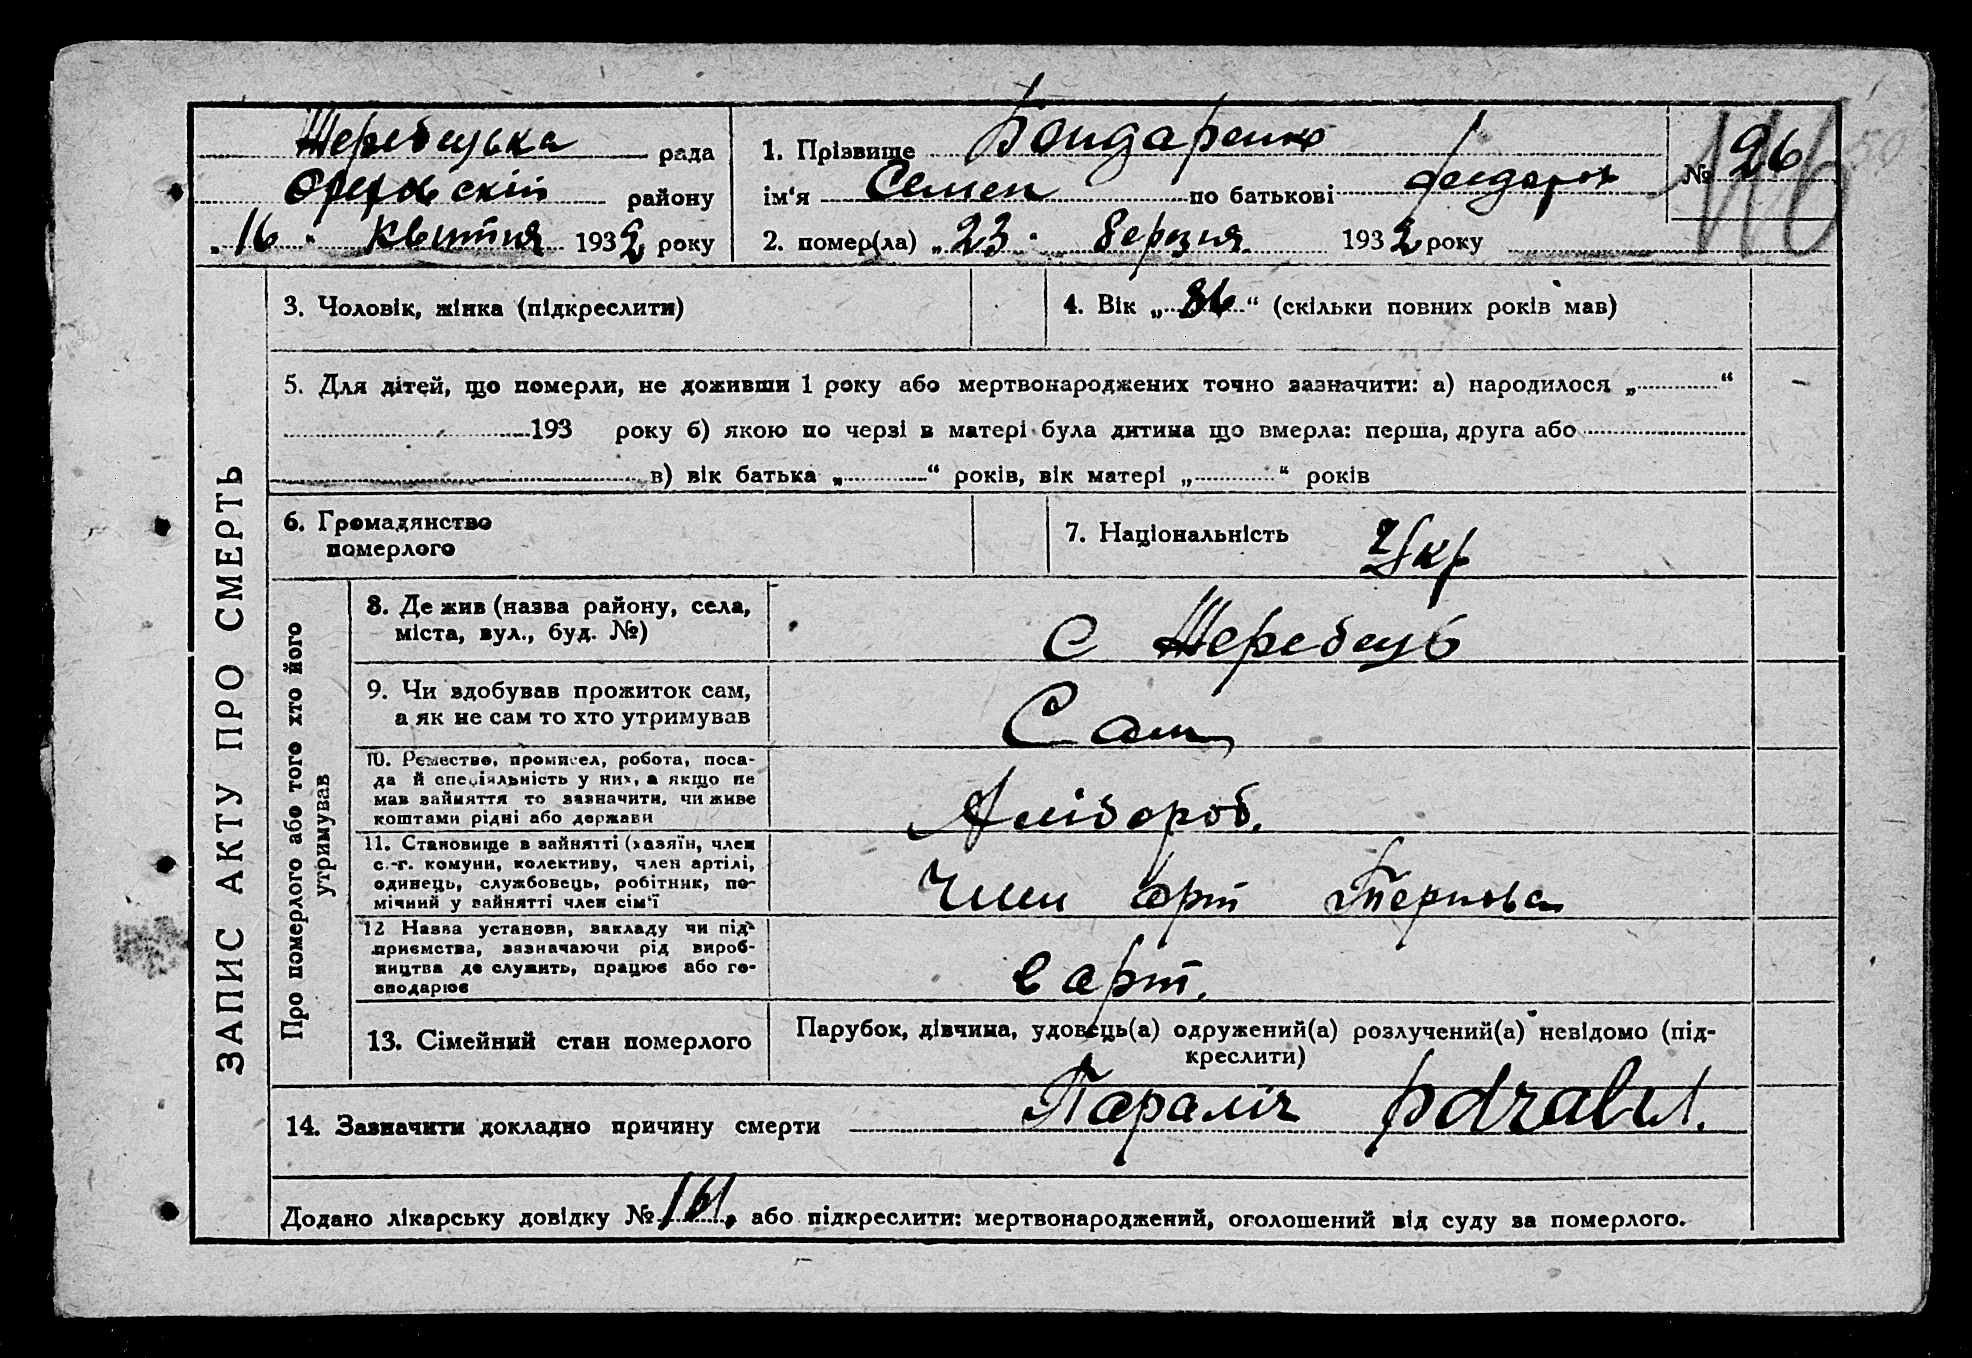 Жеребецька рада
Орехівский району
„16“ Квитня 1932 року
1. Прізвище Бондаренко
ім'я Семен по батькові
2. помер(ла) „23“ Березня 1932 року
№ 26
3. Чоловік, жінка (підкреслити)
4. Вік „86“ (скільки повних років мав)
5. Для дітей, що померли, не доживши 1 року або мертвонароджених точно зазначити: а) народилося „ “
193 року б) якою по черзі в матері була дитина що вмерла: перша, друга або
в) вік батька „ “ років, вік матері „ “ років
6. Громадянство
померлого
7. Національність Укр
ЗАПИС АКТУ ПРО СМЕРТЬ
Про померлого або того хто його
утримував
8. Де жив (назва району, села,
міста, вул., буд. №)
С Жеребець
9. Чи здобував прожиток сам,
а як не сам то хто утримував
Сам
10. Ремество, промисел, робота, поса-
да й спеціяльність у них, а якщо не
мав зайняття то зазначити, чи живе
коштами рідні або держави
Хлібороб.
11. Становище в зайнятті (хазяїн, член
с.-г. комуни, колективу, член артілі,
одинець, службовець, робітник, по-
мічний у зайнятті член сім'ї
Член арт
12 Назва установи, закладу чи під-
приємства, зазначаючи рід вироб-
ництва де служить, працює або го-
сподарює
в арт.
13. Сімейний стан померлого
Парубок, дівчина, удовець(а) одружений(а) розлучений(а) невідомо (під-
креслити)
14. Зазначити докладно причину смерти Параліч
Додано лікарську довідку № 161, або підкреслити: мертвонароджений, оголошений від суду за померлого.